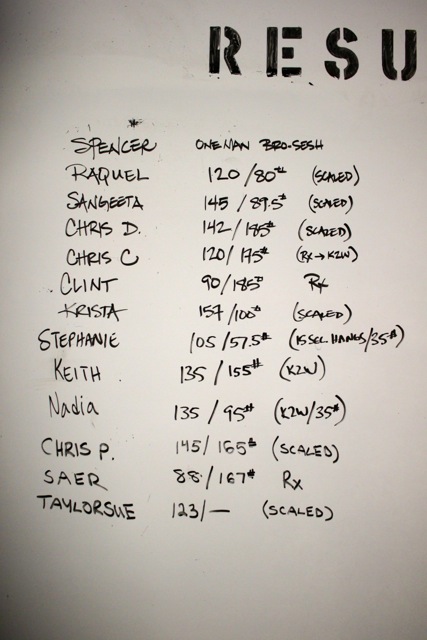 RESU
* SPENCER ONE MAN BRO-SESH
RAQUEL 120/80# (SCALED)
SANGEETA 145/89.5# (SCALED)
CHRIS D. 142/185# (SCALED)
CHRIS C 120/175# (RX→K2W)
CLINT 90/185# Rx
KRISTA 157/100# (SCALED)
STEPHANIE 105/57.5# (15 SEC HANGS/35#)
KEITH 135/155# (K2W)
Nadia 135/95# (K2W/35#)
CHRIS P. 145/165# (SCALED)
SAER 88/167# Rx
TAYLORSUE 123/— (SCALED)